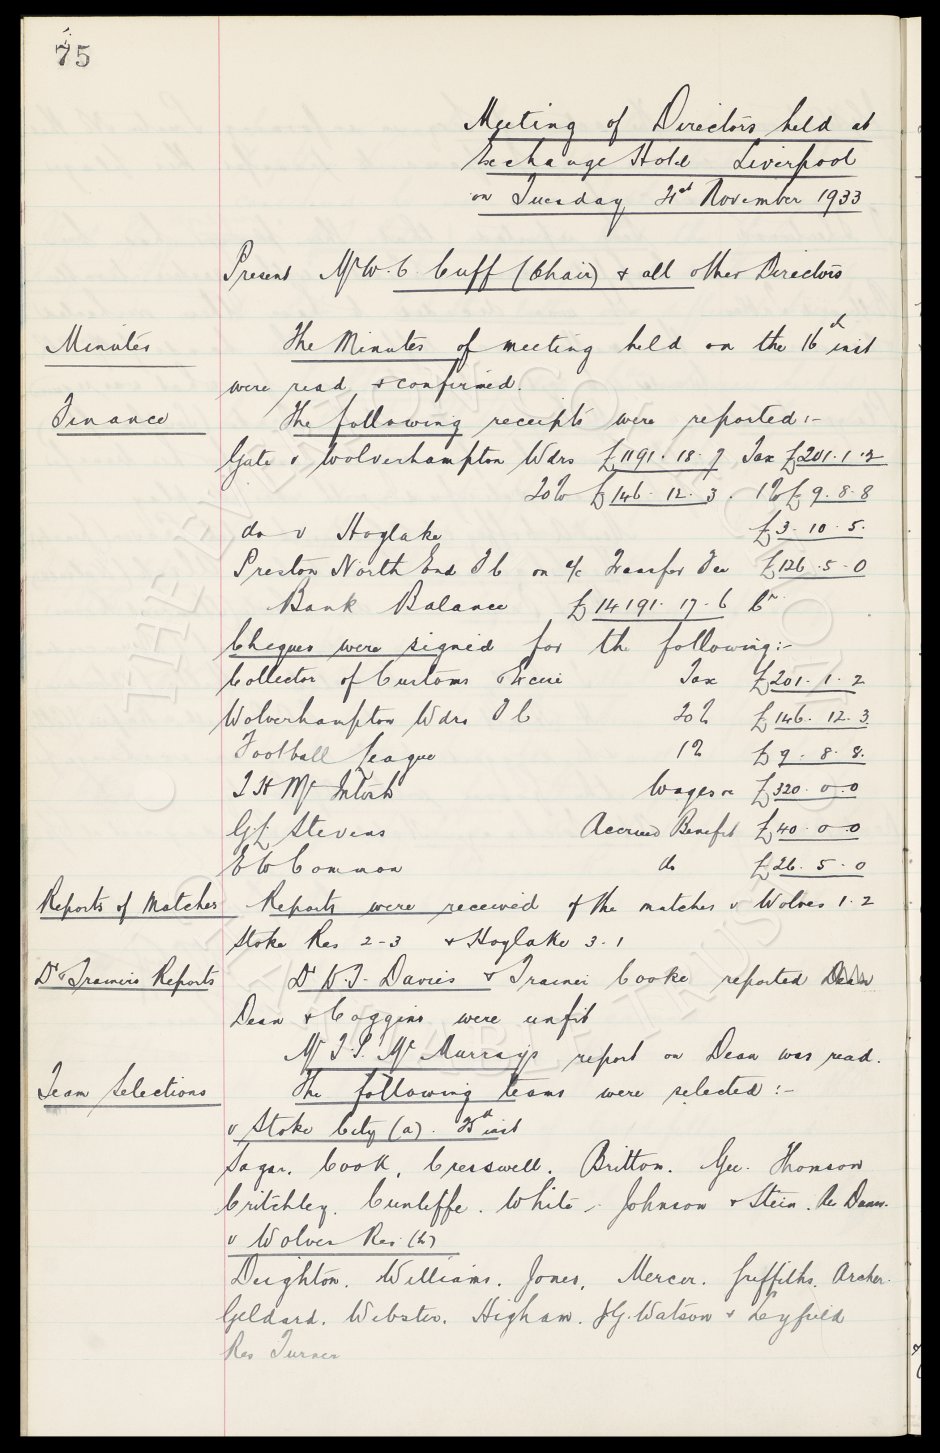 75
Meeting of Directors held at
Exchange Hotel Liverpool
on Tuesday 21st November 1933
Present Mr W. C. Cuff (Chair) & all other Directors
Minutes The Minutes of meeting held on the 16th inst
were read & confirmed.
Finance The following receipts were reported :-
Gate v Wolverhampton Wdrs £1191. 18. 7 Tax £201. 1. 2
20% £146. 12. 3. 1% £9. 8. 8
do v Hoylake £3. 10. 5.
Preston North End F C on a/c Transfer Fee £126. 5. 0
Bank Balance £14191. 17. 6 Cr
Cheques were signed for the following:-
Collector of Customs & Excise Tax £201. 1. 2
Wolverhampton Wdrs F C 20% £146. 12. 3
Football League 1% £9. 8. 8.
T H McIntosh Wages £320. 0. 0
G E Stevens Accrued Benefit £40. 0. 0
E W Common do £26. 5. 0
Reports of Matches Reports were received of the matches v Wolves 1. 2
Stoke Res 2-3 & Hoylake 3. 1
Dr & Trainers Reports Dr D. J. Davies & Trainer Cooke reported
Dean & Coggins were unfit
Mr T. P. McMurrays report on Dean was read.
Team Selections The following teams were selected :-
v Stoke City (a). 25th inst
Sagar. Cook. Cresswell. Britton. Gee. Thomson
Critchley. Cunliffe. White. Johnson & Stein. Res
v Wolves Res (h)
Deighton. Williams. Jones. Mercer. Griffiths. Archer.
Geldard. Webster. Higham. J G. Watson & Leyfield
Res Turner
THE EVERTON COLLECTION CHARITABLE TRUST